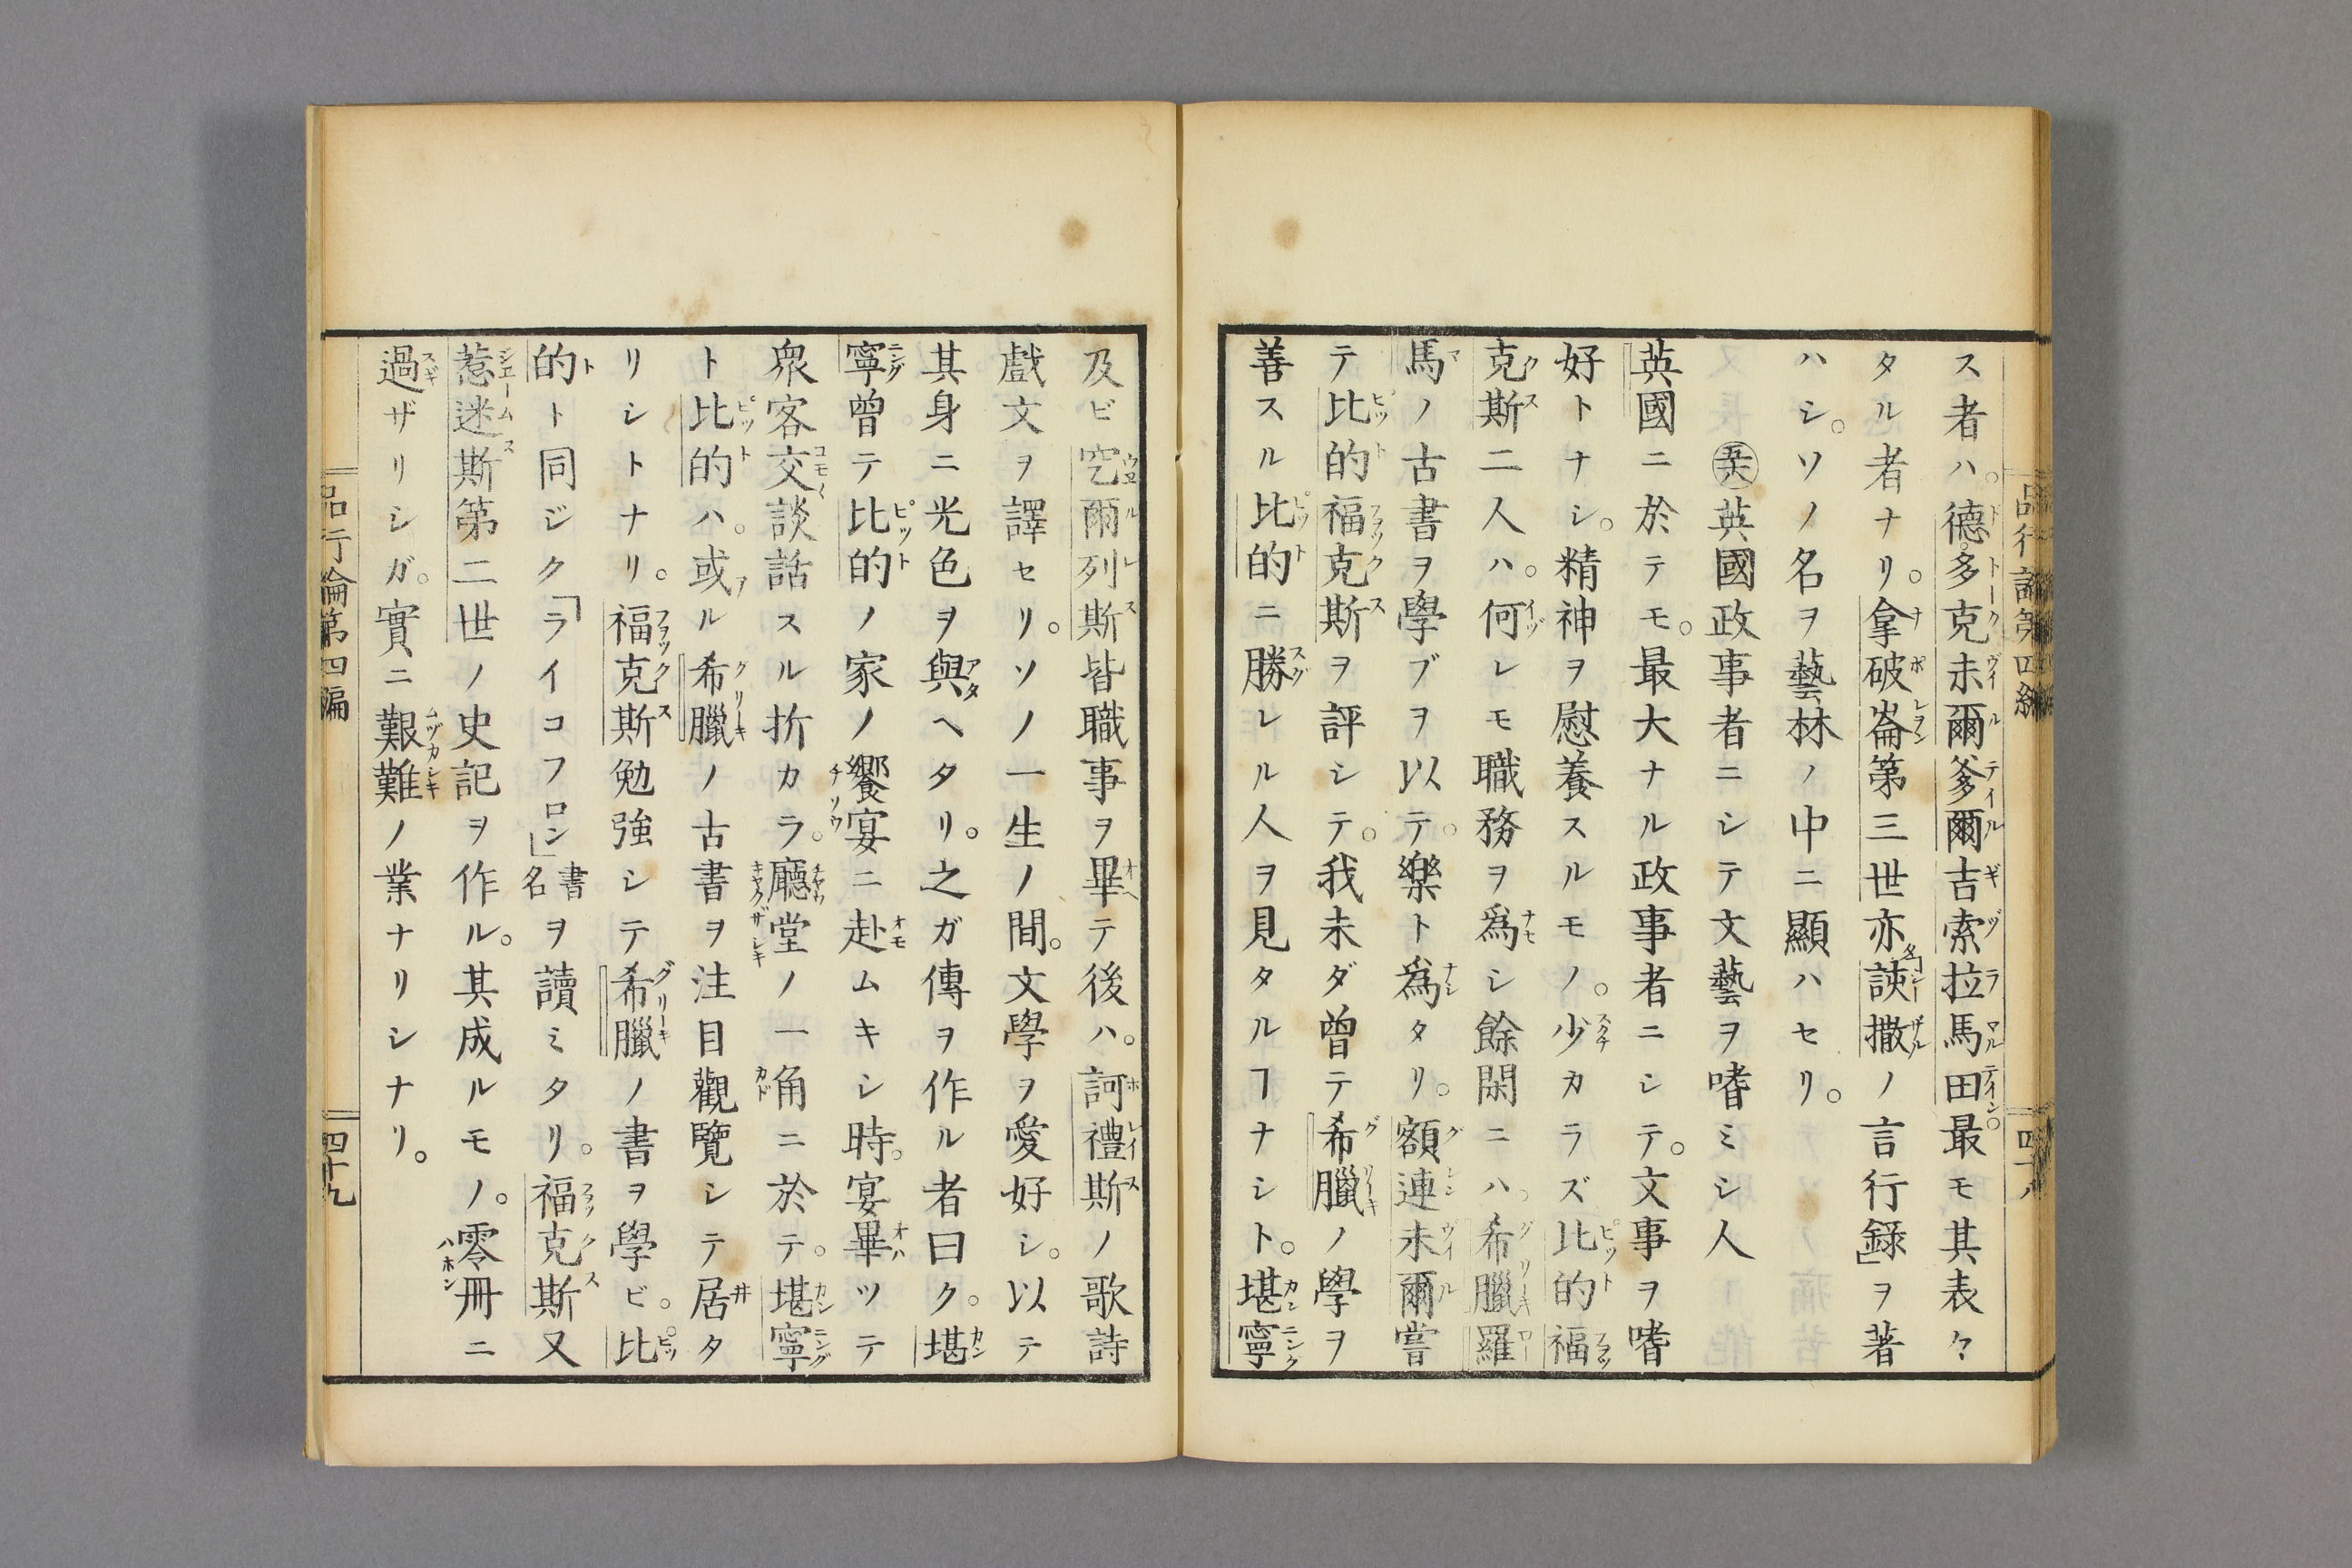 ス者ハ。德多克未爾爹爾吉索拉馬田最モ其表々
タル者ナリ。拿破崙第三世亦諛撒ノ言行錄」ヲ著
ハシ。ソノ名ヲ藝林ノ中ニ顯ハセリ。
英國政事者ニシテ文藝ヲ嗜ミシ人
英國ニ於テモ。最大ナル政事者ニシテ。文事ヲ嗜
好トナシ。精神ヲ慰養スルモノ。少カラズ比的福
克斯二人ハ。何レモ職務ヲ爲シ餘閑ニハ。希臘羅
馬ノ古書ヲ學ブヲ以テ。樂ト爲タリ。額連未爾嘗
テ比的福克斯ヲ評シテ。我未ダ曾テ希臘ノ學ヲ
善スル比的ニ勝レル人ヲ見タルヿナシト。堪寧
及ビ窆爾列斯皆職事ヲ畢テ後ハ。訶禮斯ノ歌詩
戲文ヲ譯セリ。ソノ一生ノ間。文學ヲ愛好シ。以テ
其身ニ光色ヲ與ヘタリ。之ガ傳ヲ作ル者曰ク。堪
寧曾テ比的ノ家ノ饗宴ニ赴ムキシ時。宴畢ツテ
衆客交談話スル折カラ。廳堂ノ一角ニ於テ。堪寧
ト比的ハ。或ル希臘ノ古書ヲ注目觀覽シテ居タ
リシトナリ。福克斯勉強シテ希臘ノ書ヲ學ビ。比
的ト同ジク「ライコフロン」書名ヲ讀ミタリ。福克斯又
惹迷斯第二世ノ史記ヲ作ル。其成ルモノ。零冊ニ
過ザリシガ。實ニ艱難ノ業ナリシナリ。
品行論第四編
四十九